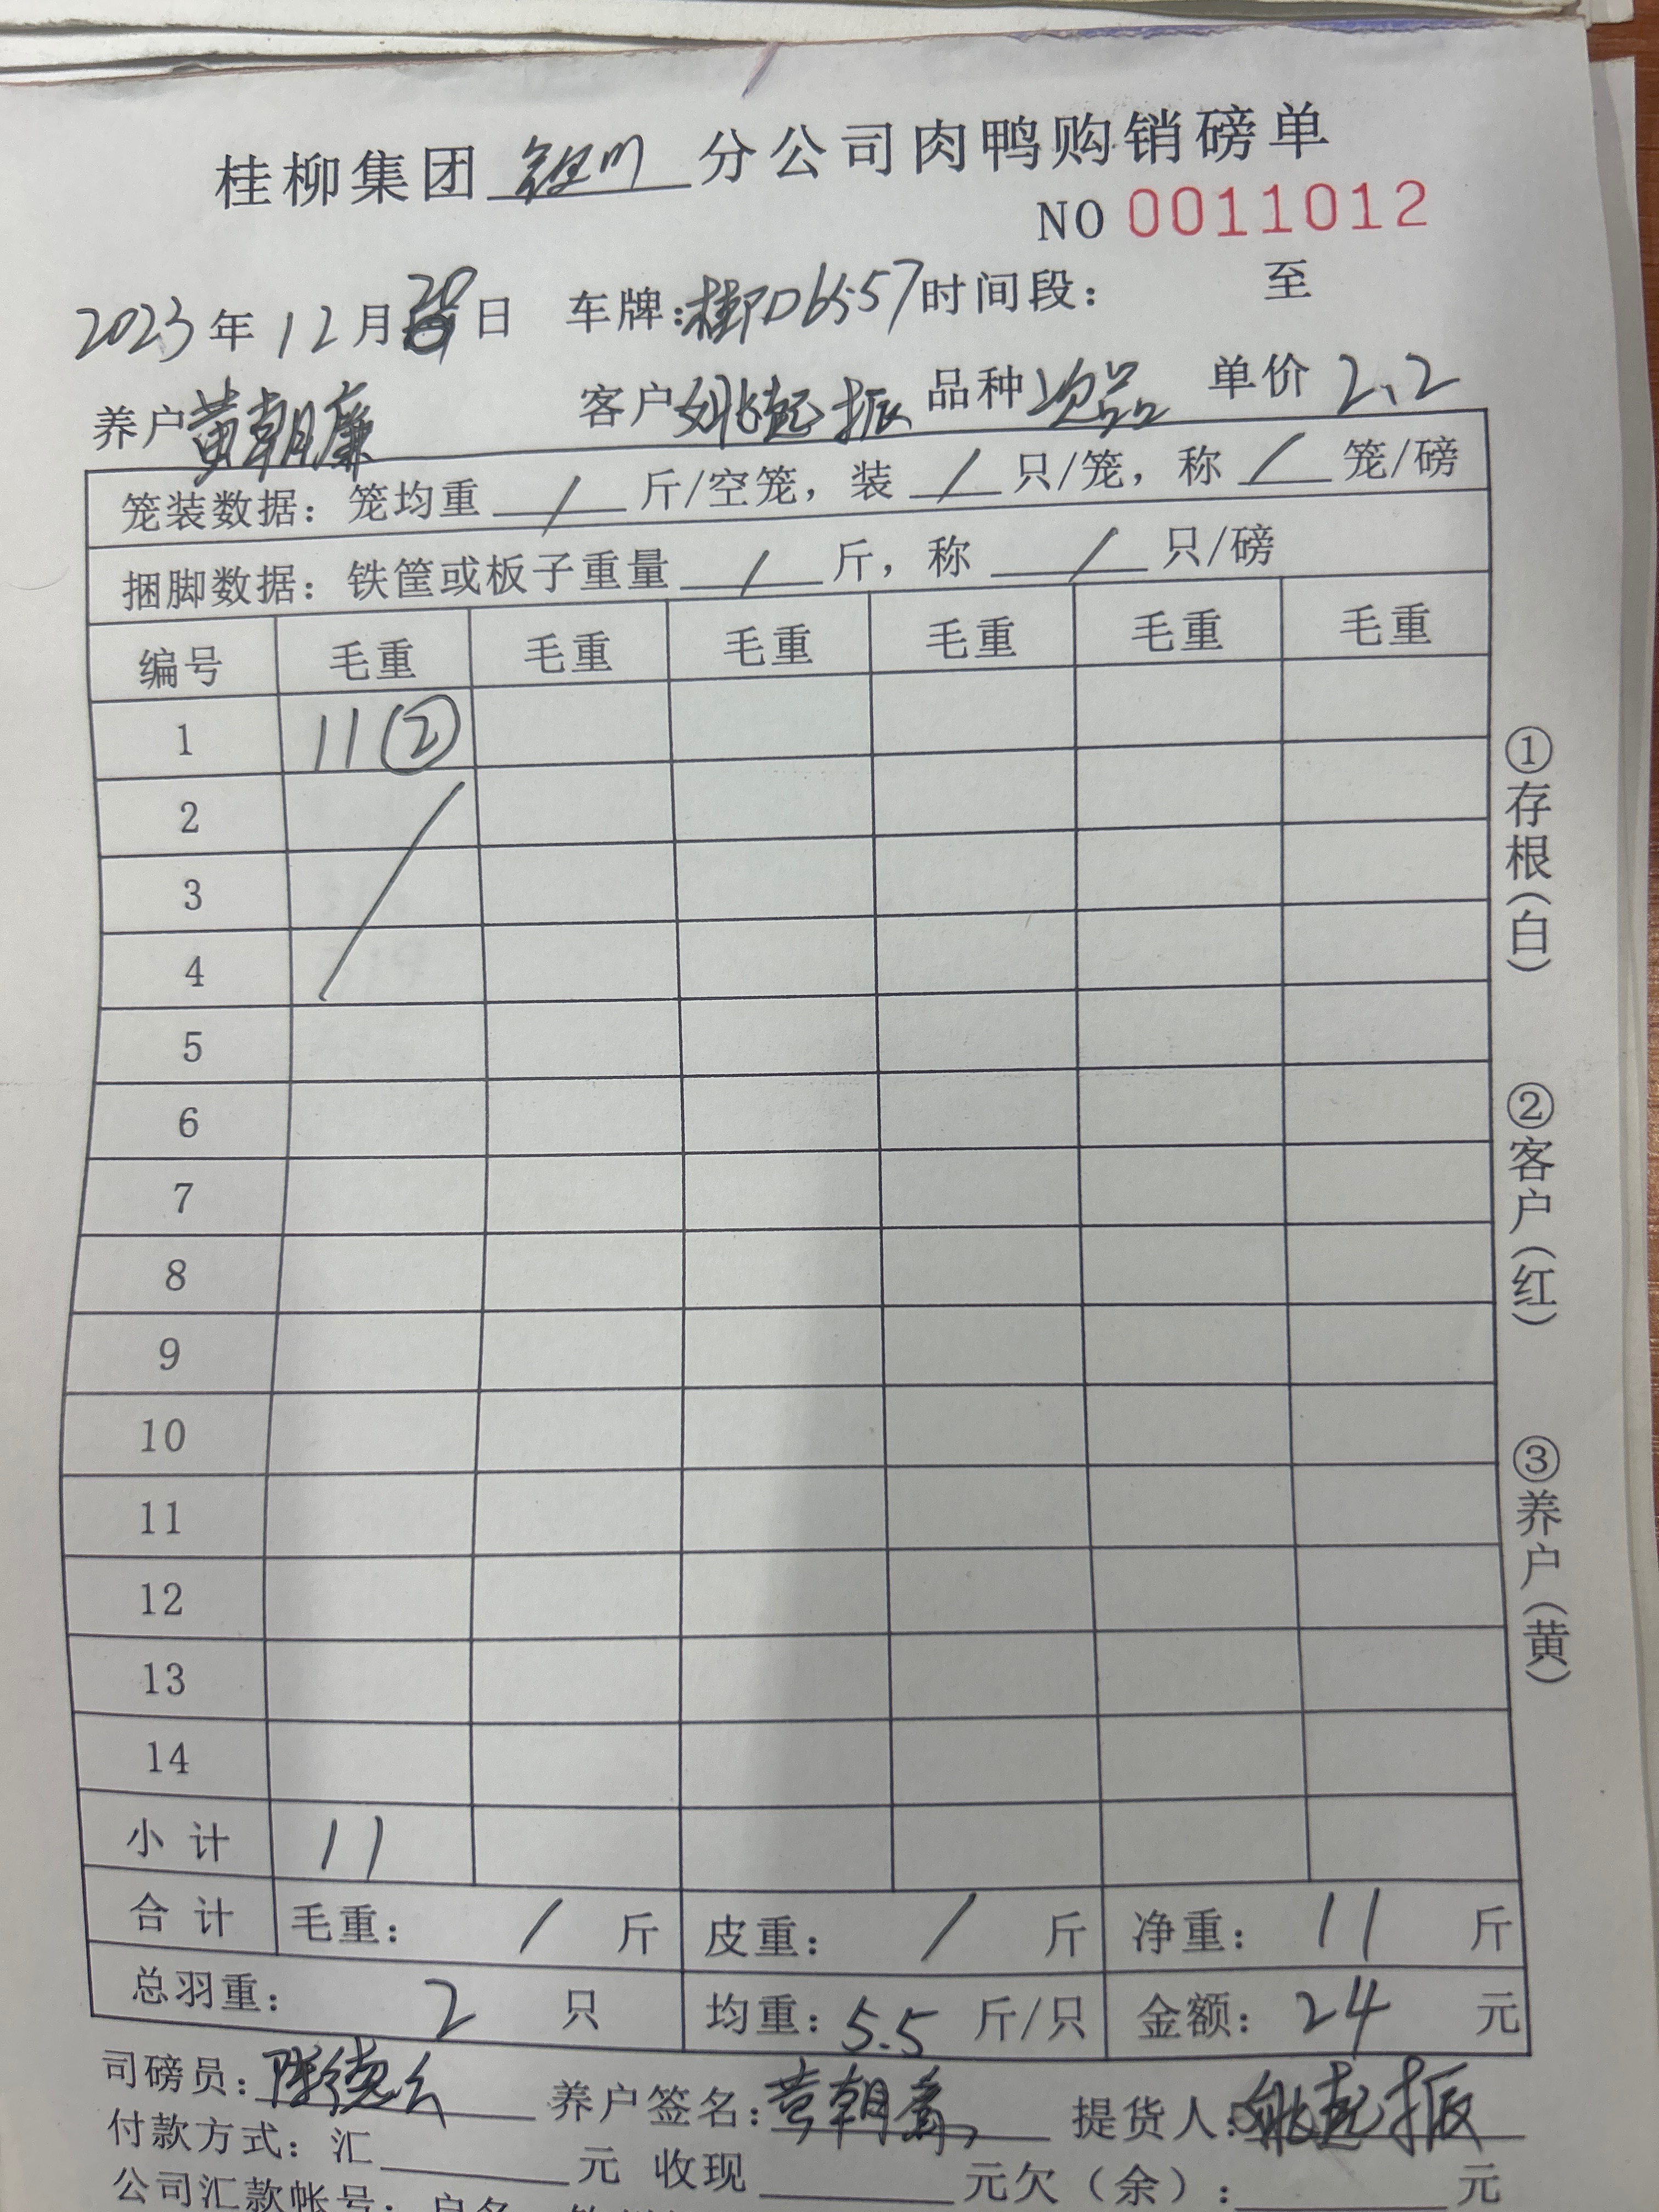 桂柳集团 钦州 分公司肉鸭购销磅单
NO 0011012
2023年12月20日 车牌:桂PD6557时间段: 至
养户黄朝廉 客户姚起振 品种次品 单价2.2
笼装数据:笼均重 / 斤/空笼,装 / 只/笼,称 / 笼/磅
捆脚数据:铁筐或板子重量 / 斤,称 / 只/磅
编号 毛重 毛重 毛重 毛重 毛重 毛重
1 11②
2
3
4
5
6
7
8
9
10
11
12
13
14
小计 11
合计 毛重: / 斤 皮重: / 斤 净重: 11 斤
总羽重: 2 只 均重:5.5 斤/只 金额: 24 元
司磅员: 养户签名:黄朝 提货人:姚起振
付款方式:汇 元 收现 元欠(余): 元
公司汇款帐号:户名
①存根(白)
②客户(红)
③养户(黄)